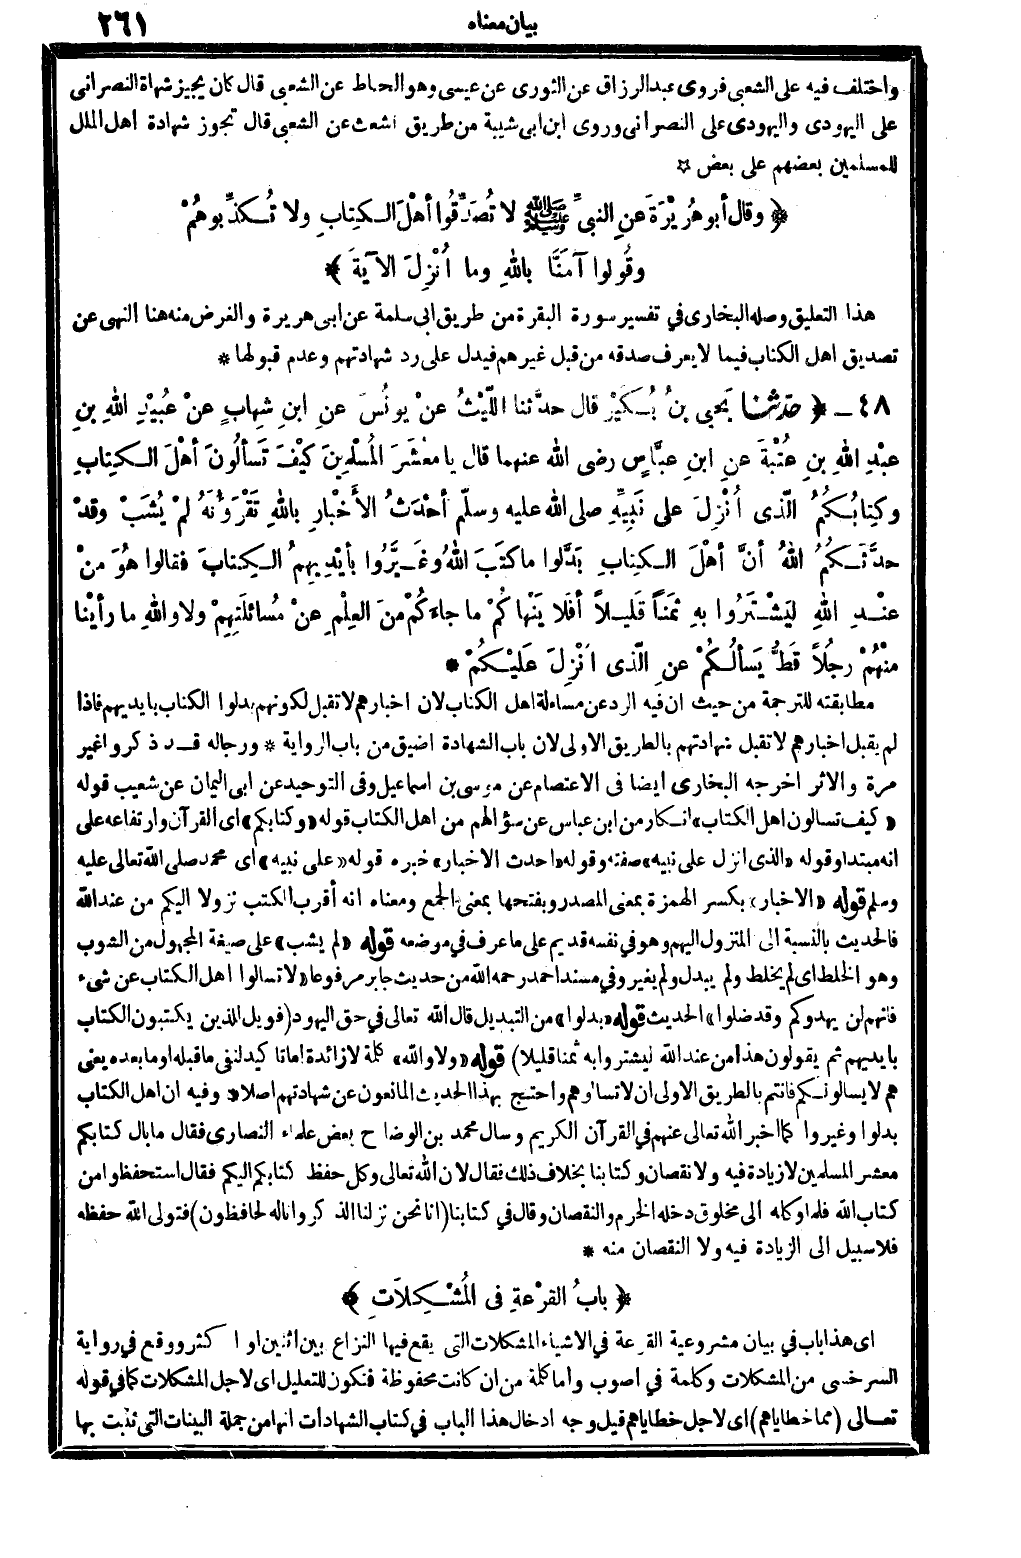 بيان معناه ٢٦١
واختلف فيه على الشعبي فروى عبد الرزاق عن الثورى عن عيسى وهو الحاط عن الشعبى قال كان يجيز شهاة النصرانى
على اليهودى واليهودى على النصرانى وروى ابن ابى شيبة من طريق اشعث عن الشعبي قال تجوز شهادة اهل الملل
للمسلمين بعضهم على بعض *
﴿ وقال أبو هُرَيْرَةَ عَنِ النبيِّ ﷺ لا تُصَدِّقُوا أهْلَ الكِتابِ ولا تُكَذِّبوهُمْ
وقُولوا آمَنَّا باللهِ وما أُنْزِلَ الآيةَ ﴾
هذا التعليق وصله البخارى في تفسير سورة البقرة من طريق ابى سلمة عن ابى هريرة والغرض منه هنا النهى عن
تصديق اهل الكتاب فيما لا يعرف صدقه من قبل غيرهم فيدل على رد شهادتهم وعدم قبولها *
٤٨ - ﴿ حدثنا يَحْيى بنُ بُكَيْرٍ قال حدَّثنا اللَّيْثُ عنْ يونُسَ عنِ ابنِ شِهابٍ عنْ عُبَيْدِ اللهِ بنِ
عبْدِ اللهِ بنِ عُتْبَةَ عنِ ابنِ عبَّاسٍ رضى الله عنهما قال يا معْشَرَ المُسْلِمِينَ كَيْفَ تَسألُونَ أهْلَ الكِتابِ
وكِتابُكُمُ الَّذى أُنْزِلَ على نَبِيِّهِ صلى الله عليه وسلّم أحْدَثُ الأَخْبارِ باللهِ تَقْرَؤُنَهُ لمْ يُشَبْ وقدْ
حدَّثَكُمُ اللهُ أنَّ أهْلَ الكِتابِ بَدَّلُوا ما كتَبَ اللهُ وغَيَّرُوا بأيْدِيهِمُ الكِتابَ فقالوا هُوَ منْ
عنْدِ اللهِ لِيَشْتَرُوا بهِ ثمَناً قَلِيلاً أفَلا يَنْهاكُمْ ما جاءَكُمْ منَ العِلْمِ عنْ مُسائلَتِهِمْ ولا واللهِ ما رأيْنا
منْهُمْ رجُلاً قَطُّ يَسألُكُمْ عنِ الَّذى أُنْزِلَ عَلَيْكُمْ *
مطابقته للترجمة من حيث ان فيه الرد عن مساءلة اهل الكتاب لان اخبارهم لا تقبل لكونهم بدلوا الكتاب بايديهم فاذا
لم يقبل اخبارهم لا تقبل شهادتهم بالطريق الاولى لان باب الشهادة اضيق من باب الرواية * ورجاله قد ذكروا غير
مرة والاثر اخرجه البخارى ايضا فى الاعتصام عن موسى بن اسماعيل وفى التوحيد عن ابى اليمان عن شعيب قوله
«كيف تسالون اهل الكتاب» انكار من ابن عباس عن سؤالهم من اهل الكتاب قوله «وكتابكم» اى القرآن وارتفاعه على
انه مبتدا وقوله «الذى انزل على نبيه» صفته وقوله «احدث الاخبار» خبره قوله «على نبيه» اى محمد صلى الله تعالى عليه
وسلم قوله «الاخبار» بكسر الهمزة بمعنى المصدر وبفتحها بمعنى الجمع ومعناه انه أقرب الكتب نزولا اليكم من عند الله
فالحديث بالنسبة الى المنزول اليهم وهو في نفسه قديم على ما عرف في موضعه قوله «لم يشب» على صيغة المجهول من الشوب
وهو الخلط اى لم يخلط ولم يبدل ولم يغير وفي مسند احمد رحمه الله من حديث جابر مرفوعا «لا تسالوا اهل الكتاب عن شىء
فانهم لن يهدوكم وقد ضلوا» الحديث قوله «بدلوا» من التبديل قال الله تعالى في حق اليهود (فويل للذين يكتبون الكتاب
بايديهم ثم يقولون هذا من عند الله ليشتروا به ثمنا قليلا) قوله «ولا والله» كلمة لا زائدة اما تاكيد لنفى ما قبله او ما بعده يعنى
هم لا يسالونكم فانتم بالطريق الاولى ان لا تسالوهم واحتج بهذا الحديث المانعون عن شهادتهم اصلا * وفيه ان اهل الكتاب
بدلوا وغيروا كما اخبر الله تعالى عنهم في القرآن الكريم وسال محمد بن الوضاح بعض علماء النصارى فقال ما بال كتابكم
معشر المسلمين لا زيادة فيه ولا نقصان وكتابنا بخلاف ذلك فقال لان الله تعالى وكل حفظ كتابكم اليكم فقال استحفظوا من
كتاب الله فلما وكله الى مخلوق دخله الخرم والنقصان وقال في كتابنا (انا نحن نزلنا الذكر وانا له لحافظون) فتولى الله حفظه
فلا سبيل الى الزيادة فيه ولا النقصان منه *
﴿ بابُ القرْعةِ فى المُشْكِلاَتِ ﴾
اى هذا باب في بيان مشروعية القرعة في الاشياء المشكلات التى يقع فيها النزاع بين اثنين او اكثر ووقع في رواية
السرخسى من المشكلات وكلمة في اصوب واما كلمة من ان كانت محفوظة فتكون للتعليل اى لاجل المشكلات كما في قوله
تعالى (مما خطاياهم) اى لاجل خطاياهم قيل وجه ادخال هذا الباب في كتاب الشهادات انها من جملة البينات التى تثبت بها